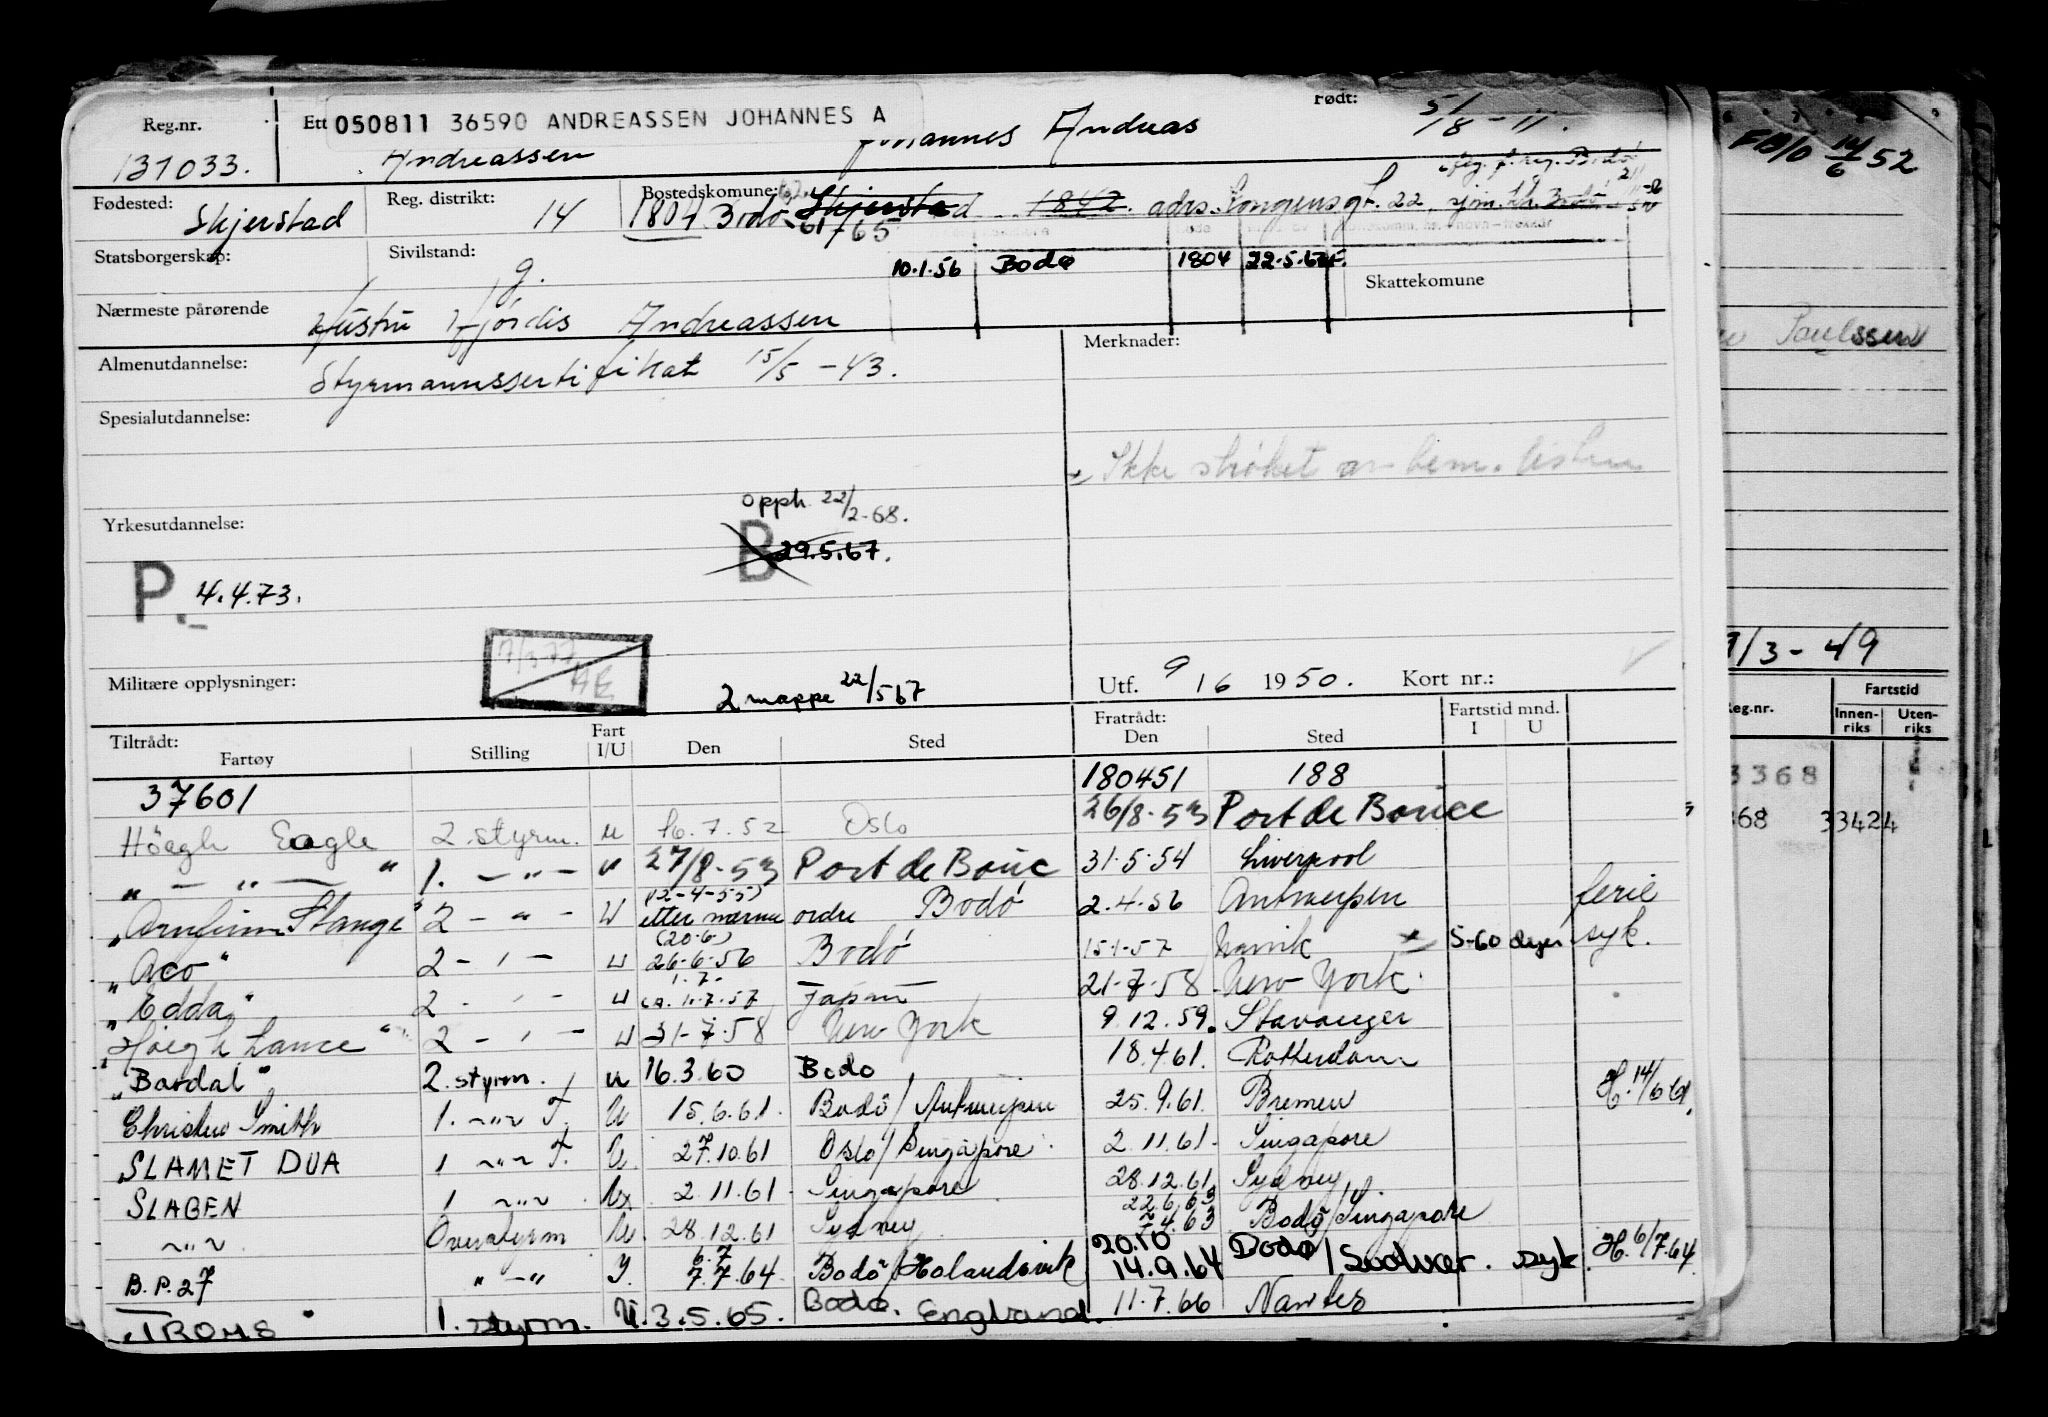 Reg.nr. Ett 050811 36590 ANDREASSEN JOHANNES A Født: 5/8-11.
131033. Andreassen Johannes Andreas
Fødested: Skjerstad Reg. distrikt: 14 Bostedskommune: 1804 Bodø Skjerstad 1842 adrs. Kongensgt. 22,
61-65
Statsborgerskap: Sivilstand: g. 10.1.56 Bodø 1804 22.5.67 Skattekomune
Nærmeste pårørende Hustru Hjördis Andreassen
Almenutdannelse: Styrmannssertifikat 15/5-43. Merknader:
Spesialutdannelse:
Ikke strøket av bem. listen
opph. 22/2-68.
Yrkesutdannelse: B 29.5.67.
P. 4.4.73.
7/3 77
Militære opplysninger: 2 mappe 22/5 67 Utf. 9/6 1950. Kort nr.:
Tiltrådt: Fartøy Stilling Fart I/U Den Sted Fratrådt: Den Sted Fartstid mnd. I U
37601 180451 188
Höegh Eagle 2. styrm. u 16.7.52 Oslo 26/8-53 Port de Bouce
" — " — " 1. — " — u 27/8-53 Port de Bouc 31.5.54 Liverpool
"Arnfinn Stange" 2 — " — U (12-4-55) etter nærme ordre Bodö 2.4.56 Antwerpen ferie
"Aco" 2 — " — U (20.6) 26-6-56 Bodö 15-1-57 Narvik 5-60 dager syk.
"Edda" 2 — " — U 1.7- ca. 11.7.57 Japan 21-7-58 New York.
"Høegh Lance" 2 — " — U 31-7-58 New York 9.12.59. Stavanger
"Bardal" 2. styrm. u 16.3.60 Bodø 18.4.61. Rotterdam
Christen Smith 1. — " — F U 15.6.61. Bodö/Antwerpen 25.9.61. Bremen H. 14/6 61.
SLAMET DUA 1 — " — F. U 27.10.61 Oslo/Singapore 2.11.61. Singapore
SLAGEN 1 — " — Ux 2.11.61. Singapore 28.12.61 Sydney
— " — Overstyrm U 28.12.61 Sydney 22.6.63 Bodö/Singapore
B.P. 27 " — " I. 6.7 7.7.64 Bodö/Holandsvik 20.10 14.9.64 Bodø/Svolvær. syk. H. 6/7.64.
TROMS 1. styrm. U. 3.5.65. Bodø. England. 11.7.66 Nantes
FB/O 14/6 52
Paulssen
9/3-49
Reg.nr. Fartstid Innenriks Utenriks
3368
368 33424